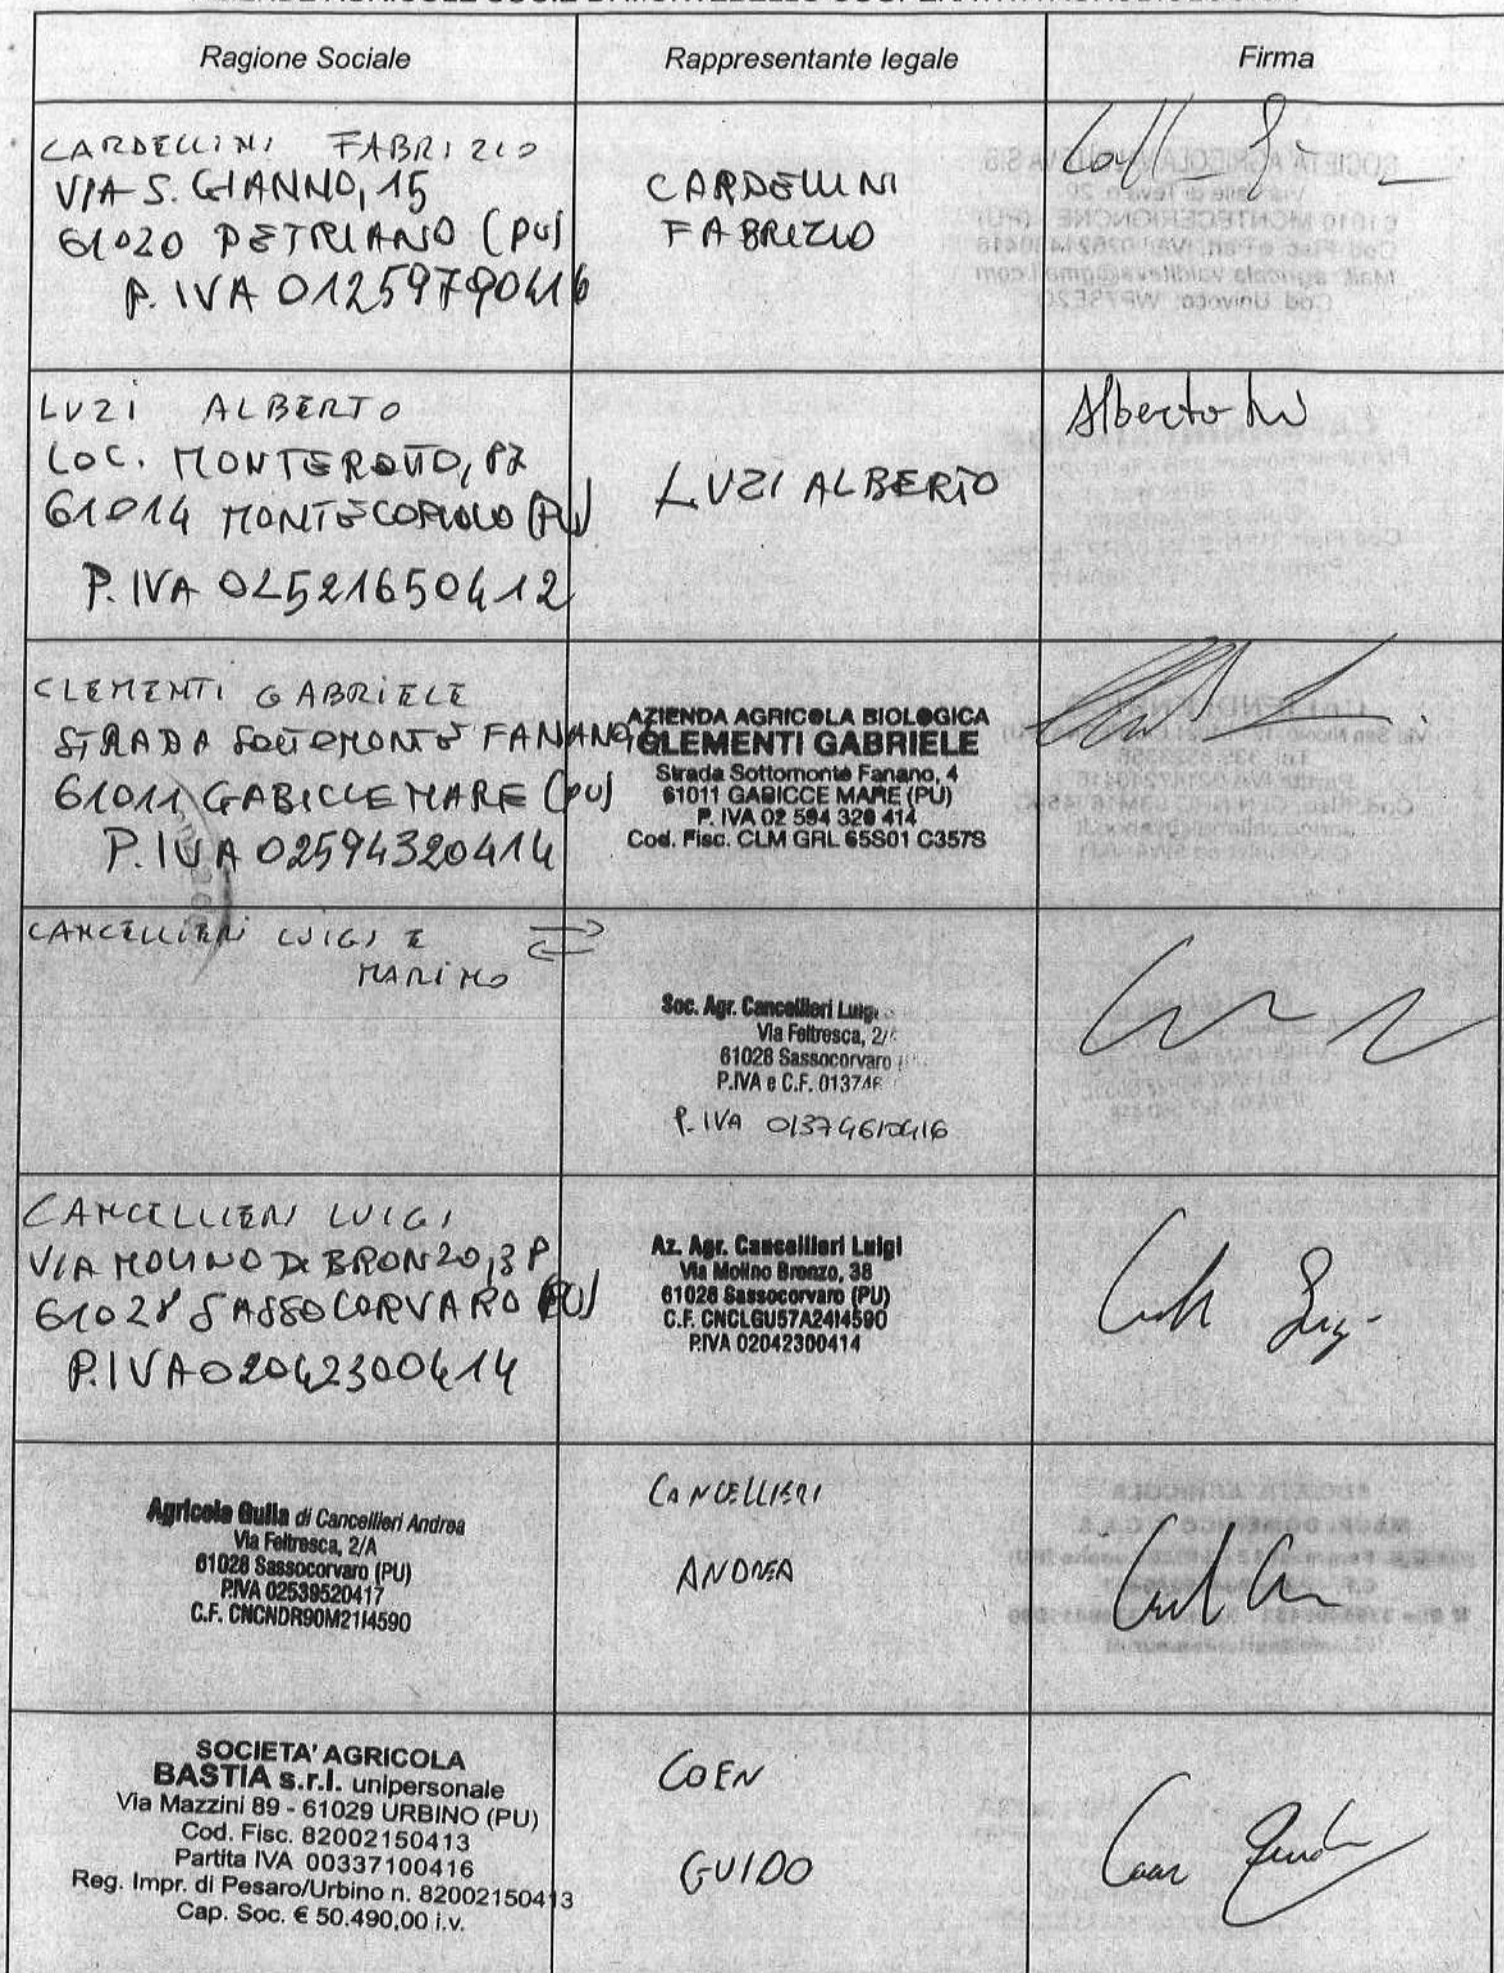 Ragione Sociale
Rappresentante legale
Firma
CARDELLINI FABRIZIO
VIA S. GIANNO, 15
61020 PETRIANO (PU)
P. IVA 01259790416
CARDELLINI
FABRIZIO
LUZI ALBERTO
LOC. MONTEROTTO, 87
61014 MONTECOPIOLO (PU)
P. IVA 02521650412
LUZI ALBERTO
Alberto
CLEMENTI GABRIELE
STRADA SOTTOMONTE FANANO, 4
61011 GABICCE MARE (PU)
P. IVA 02594320414
AZIENDA AGRICOLA BIOLOGICA
CLEMENTI GABRIELE
Strada Sottomonte Fanano, 4
61011 GABICCE MARE (PU)
P. IVA 02 594 320 414
Cod. Fisc. CLM GRL 65S01 C357S
CANCELLIERI LUIGI E
MARINO
Soc. Agr. Cancellieri Luigi
Via Feltresca, 2/
61028 Sassocorvaro
P.IVA e C.F. 013746
P. IVA 01374610416
CANCELLIERI LUIGI
VIA MOLINO DI BRONZO, 38
61028 SASSOCORVARO (PU)
P.IVA 02042300414
Az. Agr. Cancellieri Luigi
Via Molino Bronzo, 38
61028 Sassocorvaro (PU)
C.F. CNCLGU57A24I4590
P.IVA 02042300414
Agricola Gulla di Cancellieri Andrea
Via Feltresca, 2/A
61028 Sassocorvaro (PU)
P.IVA 02539520417
C.F. CNCNDR90M21I4590
CANCELLIERI
ANDREA
SOCIETA' AGRICOLA
BASTIA s.r.l. unipersonale
Via Mazzini 89 - 61029 URBINO (PU)
Cod. Fisc. 82002150413
Partita IVA 00337100416
Reg. Impr. di Pesaro/Urbino n. 82002150413
Cap. Soc. € 50.490,00 i.v.
COEN
GUIDO